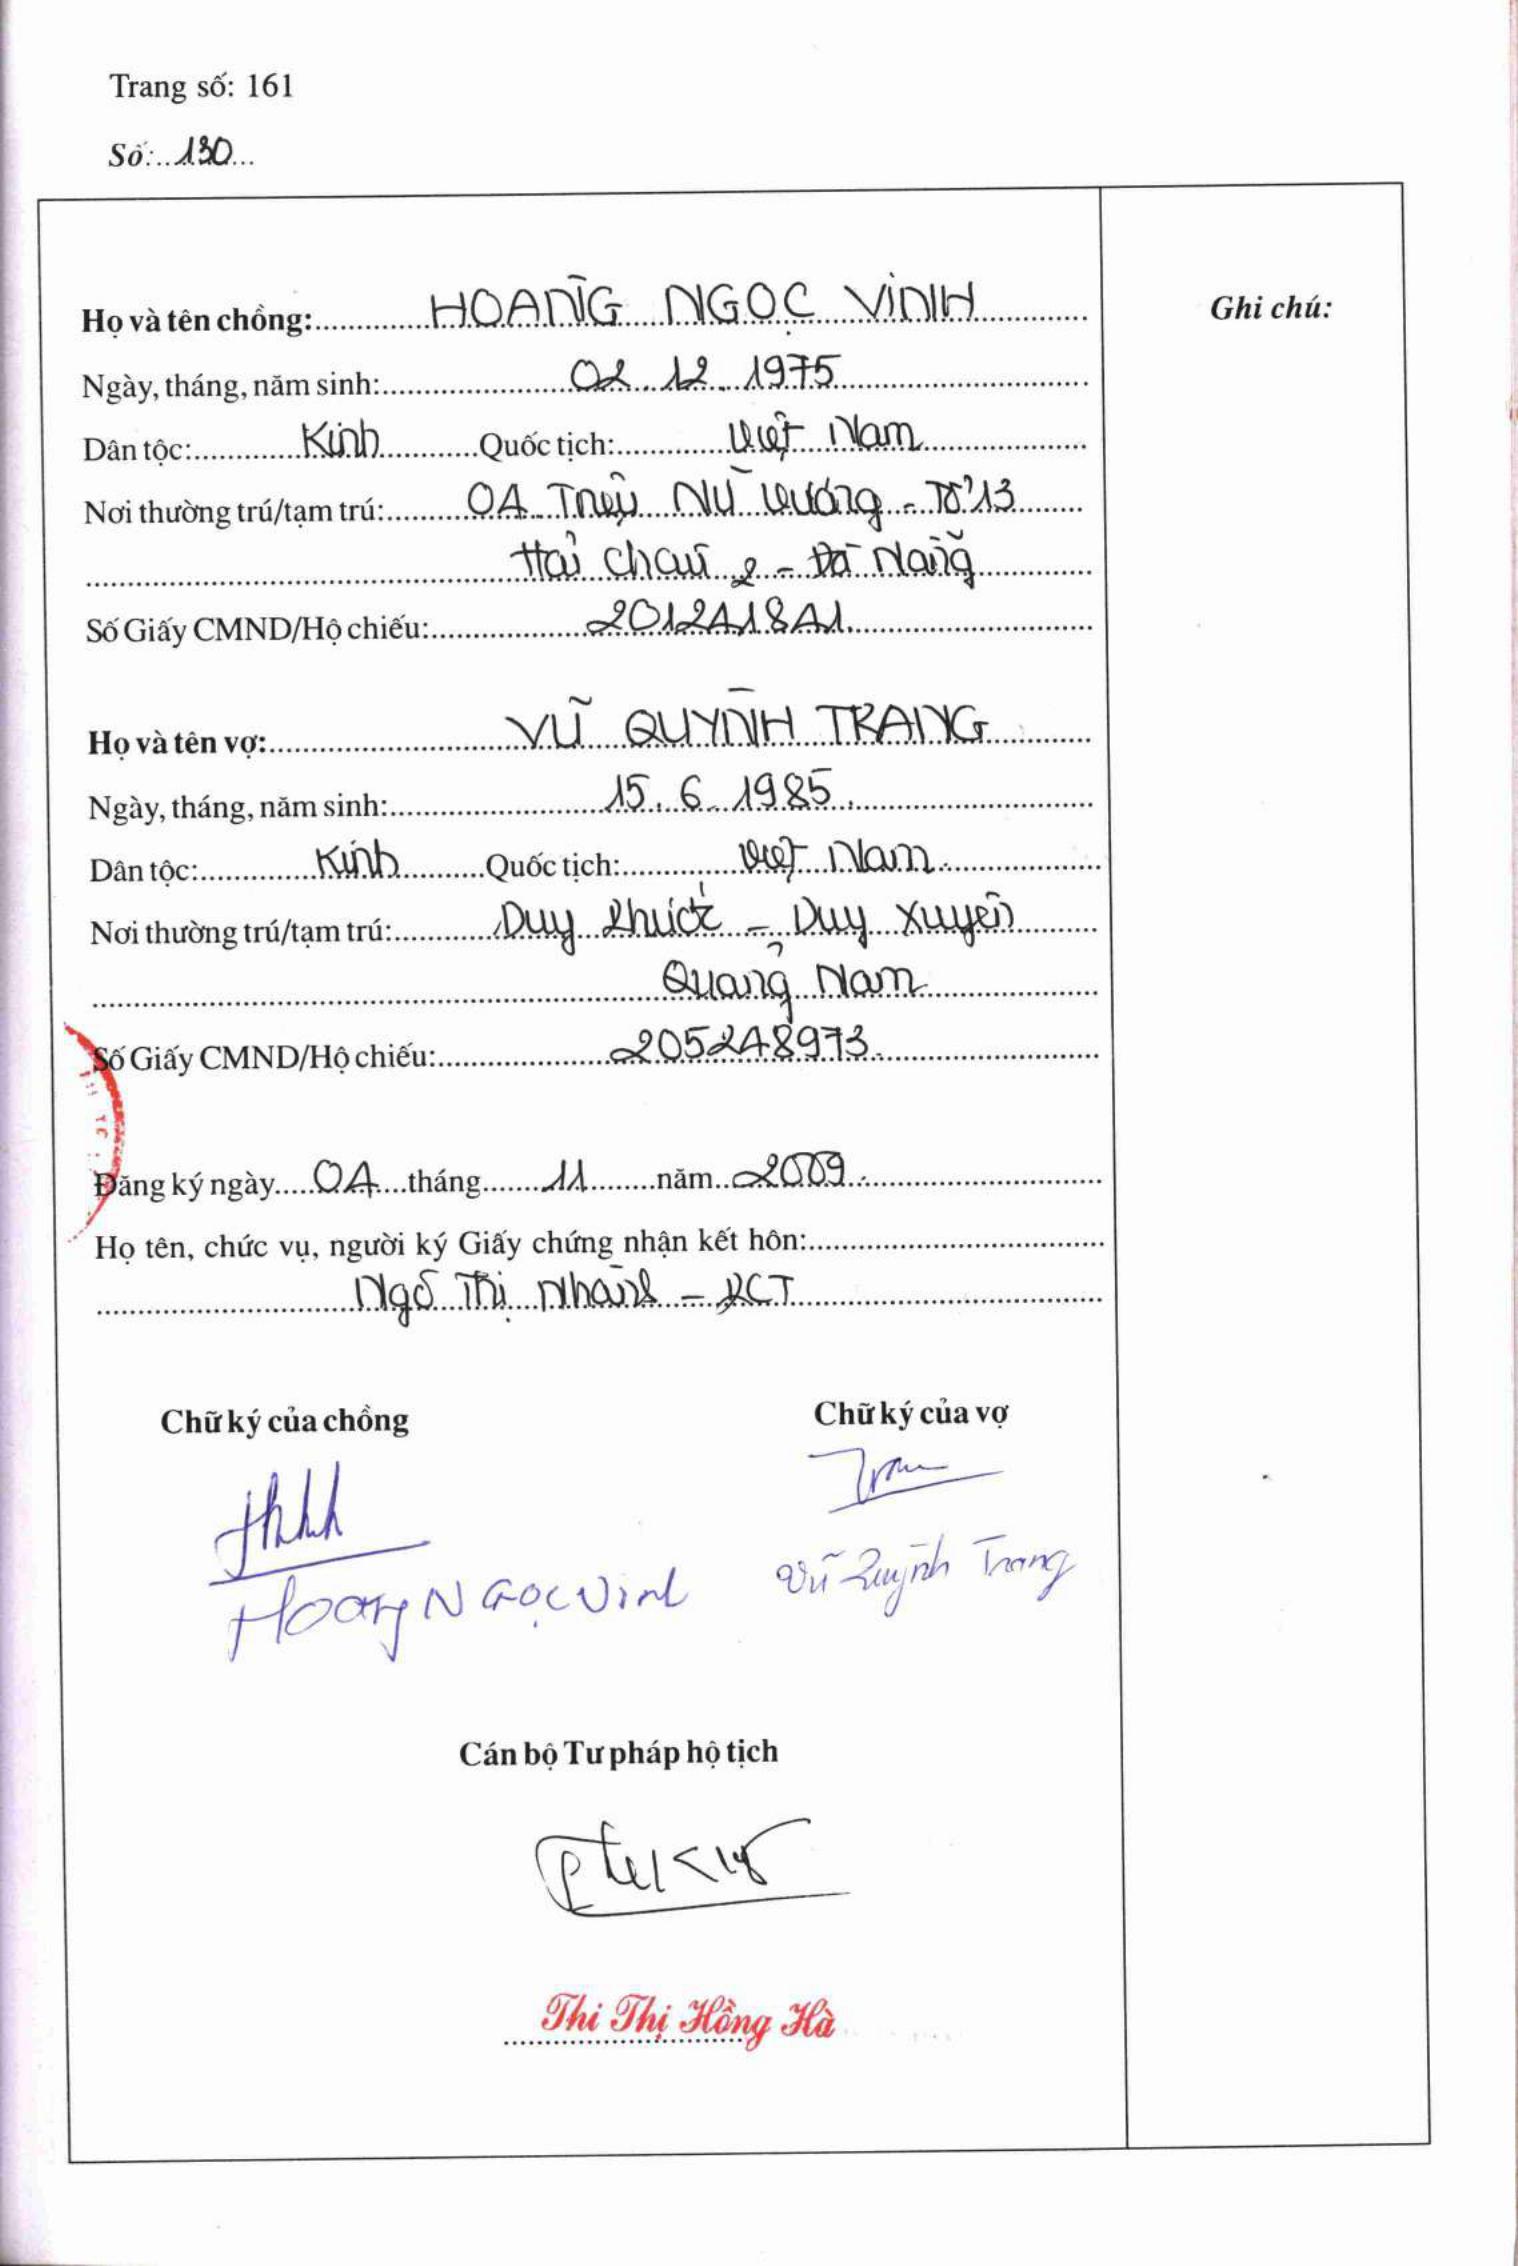 Trang số: 161
Số: 130
Họ và tên chồng: HOÀNG NGỌC VINH
Ghi chú:
Ngày, tháng, năm sinh: 02.12.1975
Dân tộc: Kinh Quốc tịch: Việt Nam
Nơi thường trú/tạm trú: 04 Triệu Nữ Vương - Tổ 13
Hải Châu 2 - Đà Nẵng
Số Giấy CMND/Hộ chiếu: 201241841
Họ và tên vợ: VŨ QUỲNH TRANG
Ngày, tháng, năm sinh: 15.6.1985
Dân tộc: Kinh Quốc tịch: Việt Nam
Nơi thường trú/tạm trú: Duy Phước - Duy Xuyên
Quảng Nam
Số Giấy CMND/Hộ chiếu: 205248973
Đăng ký ngày 04 tháng 11 năm 2009
Họ tên, chức vụ, người ký Giấy chứng nhận kết hôn:
Ngô Thị Nhành - PCT
Chữ ký của chồng Chữ ký của vợ
Hoàng Ngọc Vinh Vũ Quỳnh Trang
Cán bộ Tư pháp hộ tịch
Thi Thị Hồng Hà